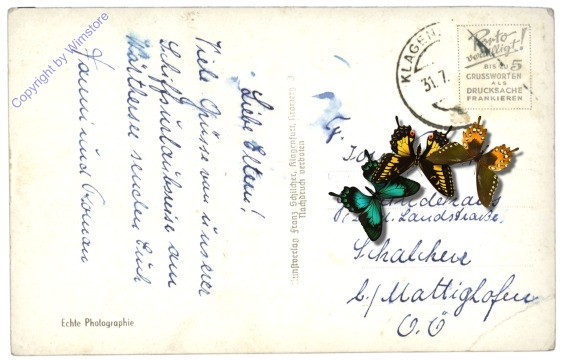 Copyright by Wimstore
Liebe Eltern!
Viele Grüsse von unserer
Schiffsurlaubsreise am
Wörthersee senden Euch
Hanni und Roman
Echte Photographie
Kunstverlag Franz Schilcher, Klagenfurt,
Nachdruck verboten
KLAGEN
31.7.
Porto
verbilligt!
BIS ZU 5
GRUSSWORTEN
ALS
DRUCKSACHE
FRANKIEREN
Landstraße)
Schalchen
b./Mattighofen
O.Ö